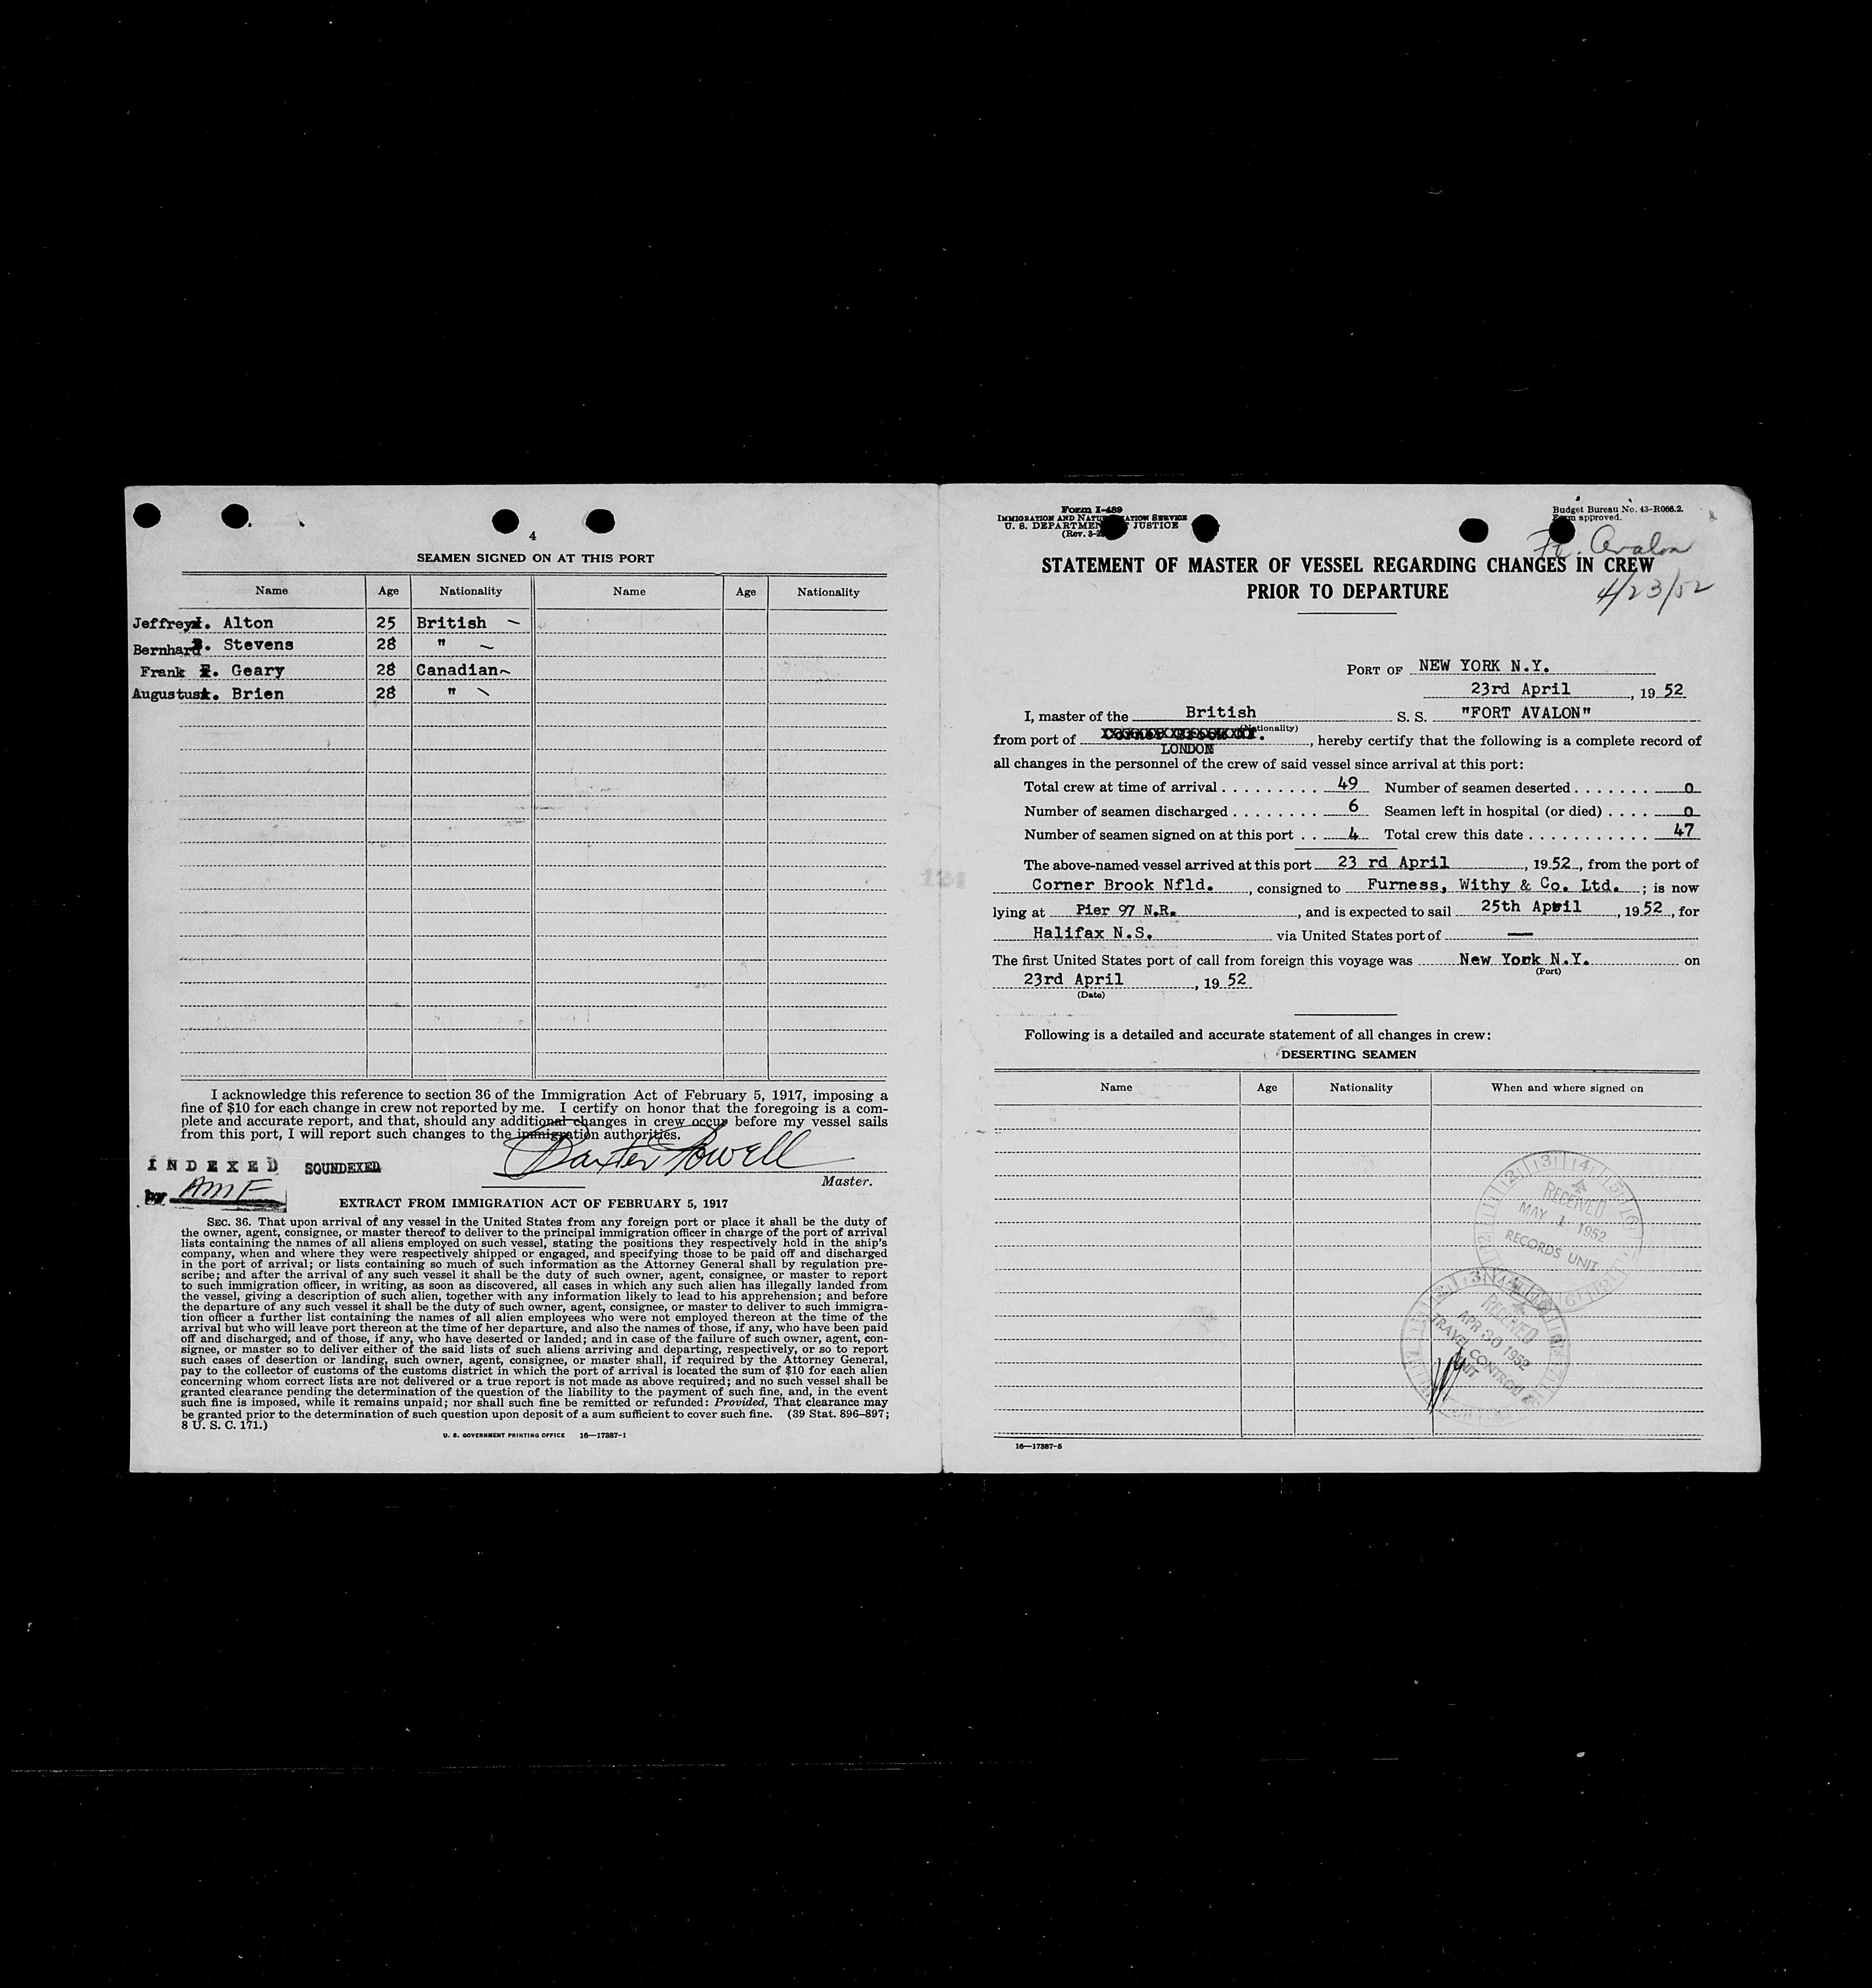 4
SEAMEN SIGNED ON AT THIS PORT
Name Age Nationality Name Age Nationality
Jeffrey . Alton 25 British —
Bernhard . Stevens 28 " —
Frank . Geary 28 Canadian —
Augustus . Brien 28 " —
I acknowledge this reference to section 36 of the Immigration Act of February 5, 1917, imposing a
fine of $10 for each change in crew not reported by me. I certify on honor that the foregoing is a com-
plete and accurate report, and that, should any additional changes in crew occur before my vessel sails
from this port, I will report such changes to the immigration authorities.
Baxter Powell
Master.
INDEXED SOUNDEXED
by AMF
EXTRACT FROM IMMIGRATION ACT OF FEBRUARY 5, 1917
SEC. 36. That upon arrival of any vessel in the United States from any foreign port or place it shall be the duty of
the owner, agent, consignee, or master thereof to deliver to the principal immigration officer in charge of the port of arrival
lists containing the names of all aliens employed on such vessel, stating the positions they respectively hold in the ship's
company, when and where they were respectively shipped or engaged, and specifying those to be paid off and discharged
in the port of arrival; or lists containing so much of such information as the Attorney General shall by regulation pre-
scribe; and after the arrival of any such vessel it shall be the duty of such owner, agent, consignee, or master to report
to such immigration officer, in writing, as soon as discovered, all cases in which any such alien has illegally landed from
the vessel, giving a description of such alien, together with any information likely to lead to his apprehension; and before
the departure of any such vessel it shall be the duty of such owner, agent, consignee, or master to deliver to such immigra-
tion officer a further list containing the names of all alien employees who were not employed thereon at the time of the
arrival but who will leave port thereon at the time of her departure, and also the names of those, if any, who have been paid
off and discharged, and of those, if any, who have deserted or landed; and in case of the failure of such owner, agent, con-
signee, or master so to deliver either of the said lists of such aliens arriving and departing, respectively, or so to report
such cases of desertion or landing, such owner, agent, consignee, or master shall, if required by the Attorney General,
pay to the collector of customs of the customs district in which the port of arrival is located the sum of $10 for each alien
concerning whom correct lists are not delivered or a true report is not made as above required; and no such vessel shall be
granted clearance pending the determination of the question of the liability to the payment of such fine, and, in the event
such fine is imposed, while it remains unpaid; nor shall such fine be remitted or refunded: Provided, That clearance may
be granted prior to the determination of such question upon deposit of a sum sufficient to cover such fine. (39 Stat. 896–897;
8 U. S. C. 171.)
U. S. GOVERNMENT PRINTING OFFICE 16—17387-1
124
Form I-489
IMMIGRATION AND NATURALIZATION SERVICE
U. S. DEPARTMENT OF JUSTICE
(Rev. 3-2
Budget Bureau No. 43-R066.2.
Form approved.
Ft. Avalon
STATEMENT OF MASTER OF VESSEL REGARDING CHANGES IN CREW
PRIOR TO DEPARTURE
4/23/52
PORT OF NEW YORK N.Y.
23rd April, 19 52
I, master of the British S. S. "FORT AVALON"
(Nationality)
from port of Corner Brook Nf. , hereby certify that the following is a complete record of
LONDON
all changes in the personnel of the crew of said vessel since arrival at this port:
Total crew at time of arrival . . . . . . . . . 49 Number of seamen deserted . . . . . . . 0
Number of seamen discharged . . . . . . . . 6 Seamen left in hospital (or died) . . . . 0
Number of seamen signed on at this port . . 4 Total crew this date . . . . . . . . . . . 47
The above-named vessel arrived at this port 23 rd April, 19 52, from the port of
Corner Brook Nfld., consigned to Furness, Withy & Co. Ltd. ; is now
lying at Pier 97 N.R., and is expected to sail 25th April, 19 52, for
Halifax N.S. via United States port of —
The first United States port of call from foreign this voyage was New York N.Y. on
(Port)
23rd April, 19 52
(Date)
Following is a detailed and accurate statement of all changes in crew:
DESERTING SEAMEN
Name Age Nationality When and where signed on
RECEIVED
MAY 1 1952
RECORDS UNIT
RECEIVED
APR 30 1952
TRAVEL CONTROL
UNIT
16—17387-5